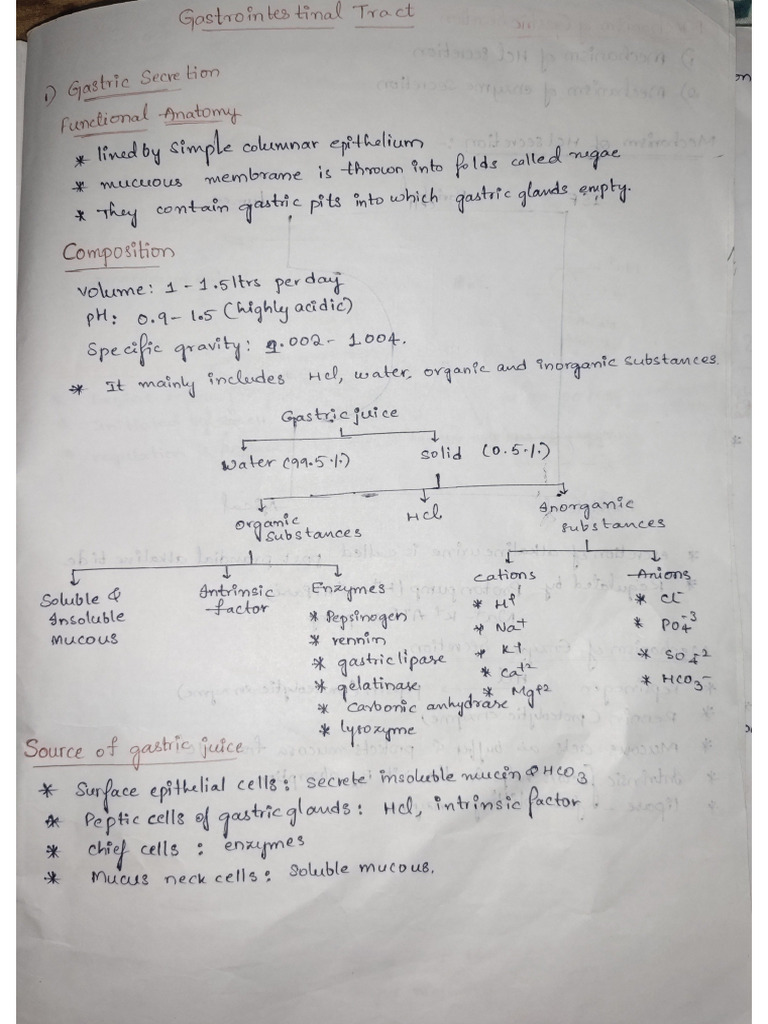 Gastrointestinal Tract
1) Gastric Secretion
Functional Anatomy
* lined by simple columnar epithelium
* mucuous membrane is thrown into folds called rugae
* They contain gastric pits into which gastric glands empty.
Composition
volume: 1 - 1.5 ltrs per day
pH: 0.9 - 1.5 (highly acidic)
Specific gravity: 1.002 - 1.004.
* It mainly includes Hcl, water, organic and inorganic substances.
Gastric juice
water (99.5%) Solid (0.5%)
organic substances Hcl Inorganic substances
Soluble & Insoluble mucous Intrinsic factor Enzymes cations Anions
* Pepsinogen * H+ * Cl-
* rennin * Na+ * PO4-3
* gastric lipase * K+ * SO4-2
* gelatinase * Ca+2 * HCO3-
* carbonic anhydrase * Mg+2
* lysozyme
Source of gastric juice
* Surface epithelial cells: secrete insoluble mucin & HCO3-
* Peptic cells of gastric glands: Hcl, intrinsic factor
* chief cells: enzymes
* Mucus neck cells: Soluble mucous.